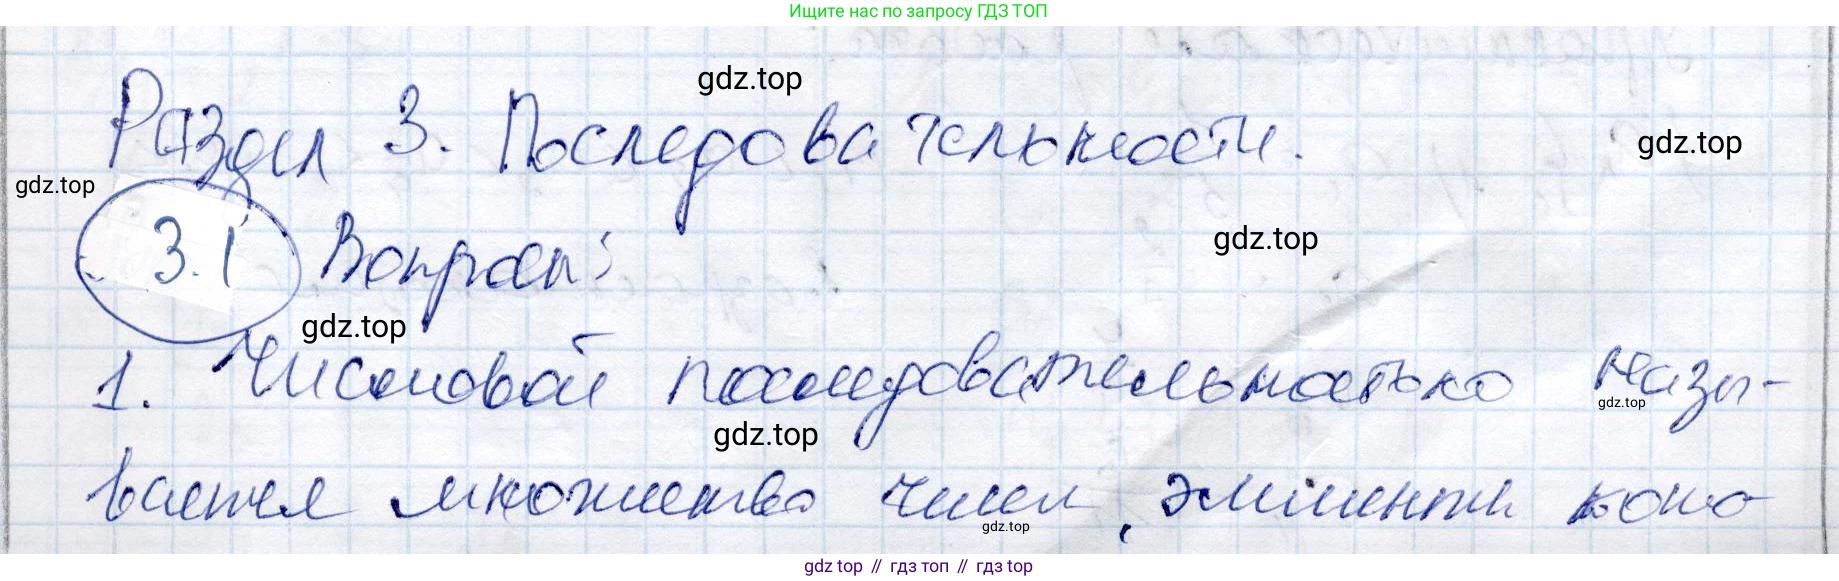 Ищите нас по запросу ГДЗ ТОП
gdz.top
Раздел 3. Последовательности.
gdz.top
gdz.top
3.1 Вопросы:
gdz.top
gdz.top
1. Числовой последовательностью назы-
gdz.top
gdz.top
вается множество чисел, элементы кото
gdz.top
gdz top // гдз топ // гдз top